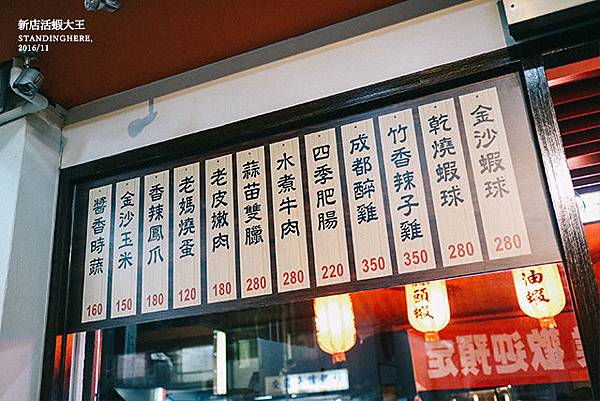 新店活蝦大王
STANDINGHERE,
2016/11
金沙蝦球 280
乾燒蝦球 280
竹香辣子雞 350
成都醉雞 350
四季肥腸 220
水煮牛肉 280
蒜苗雙臘 280
老皮嫩肉 180
老媽燒蛋 120
香辣鳳爪 180
金沙玉米 150
醬香時蔬 160
頭蝦
油蝦
歡迎預定